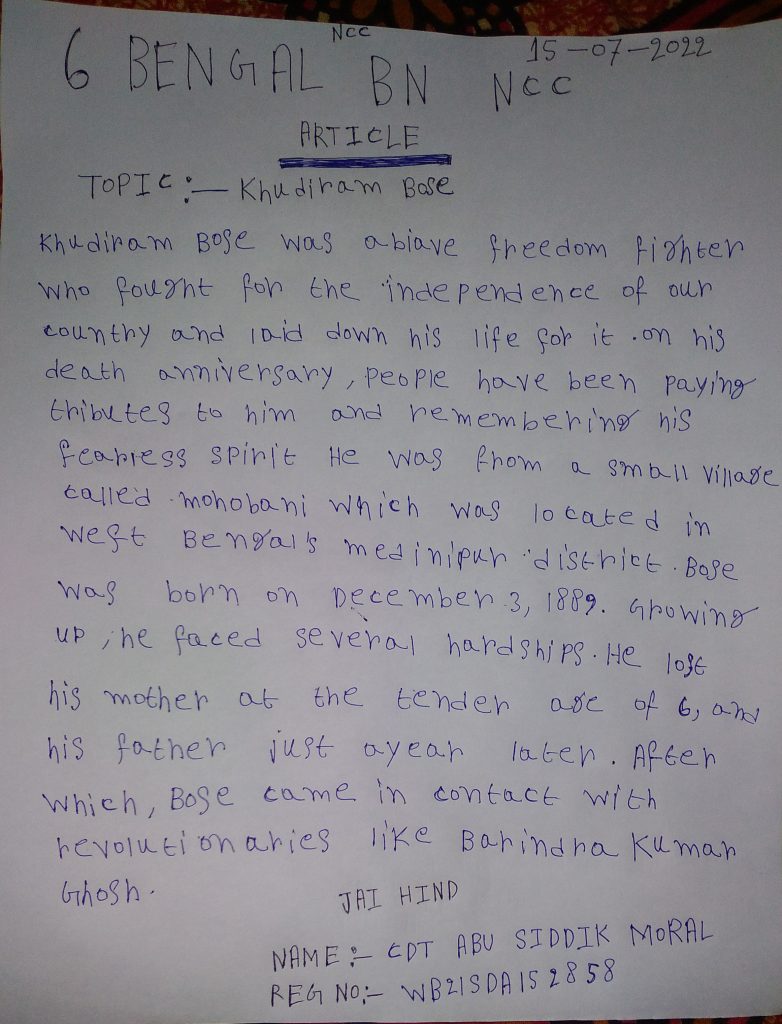 6 BENGAL NCC BN NCC 15-07-2022
ARTICLE
TOPIC :- Khudiram Bose
Khudiram Bose was abiave freedom fighter
who fought for the independence of our
country and laid down his life for it .on his
death anniversary, people have been paying
tributes to him and remembering his
fearress spirit He was from a small village
called mohobani which was located in
West Bengal's medinipur district. Bose
was born on December 3, 1889. Growing
up, he faced several hardships. He lost
his mother at the tender age of 6, and
his father just ayear later. After
which, Bose came in contact with
revolutionaries like Barindra Kumar
Ghosh.
JAI HIND
NAME :- CDT ABU SIDDIK MORAL
REG NO:- WB21SDA152858